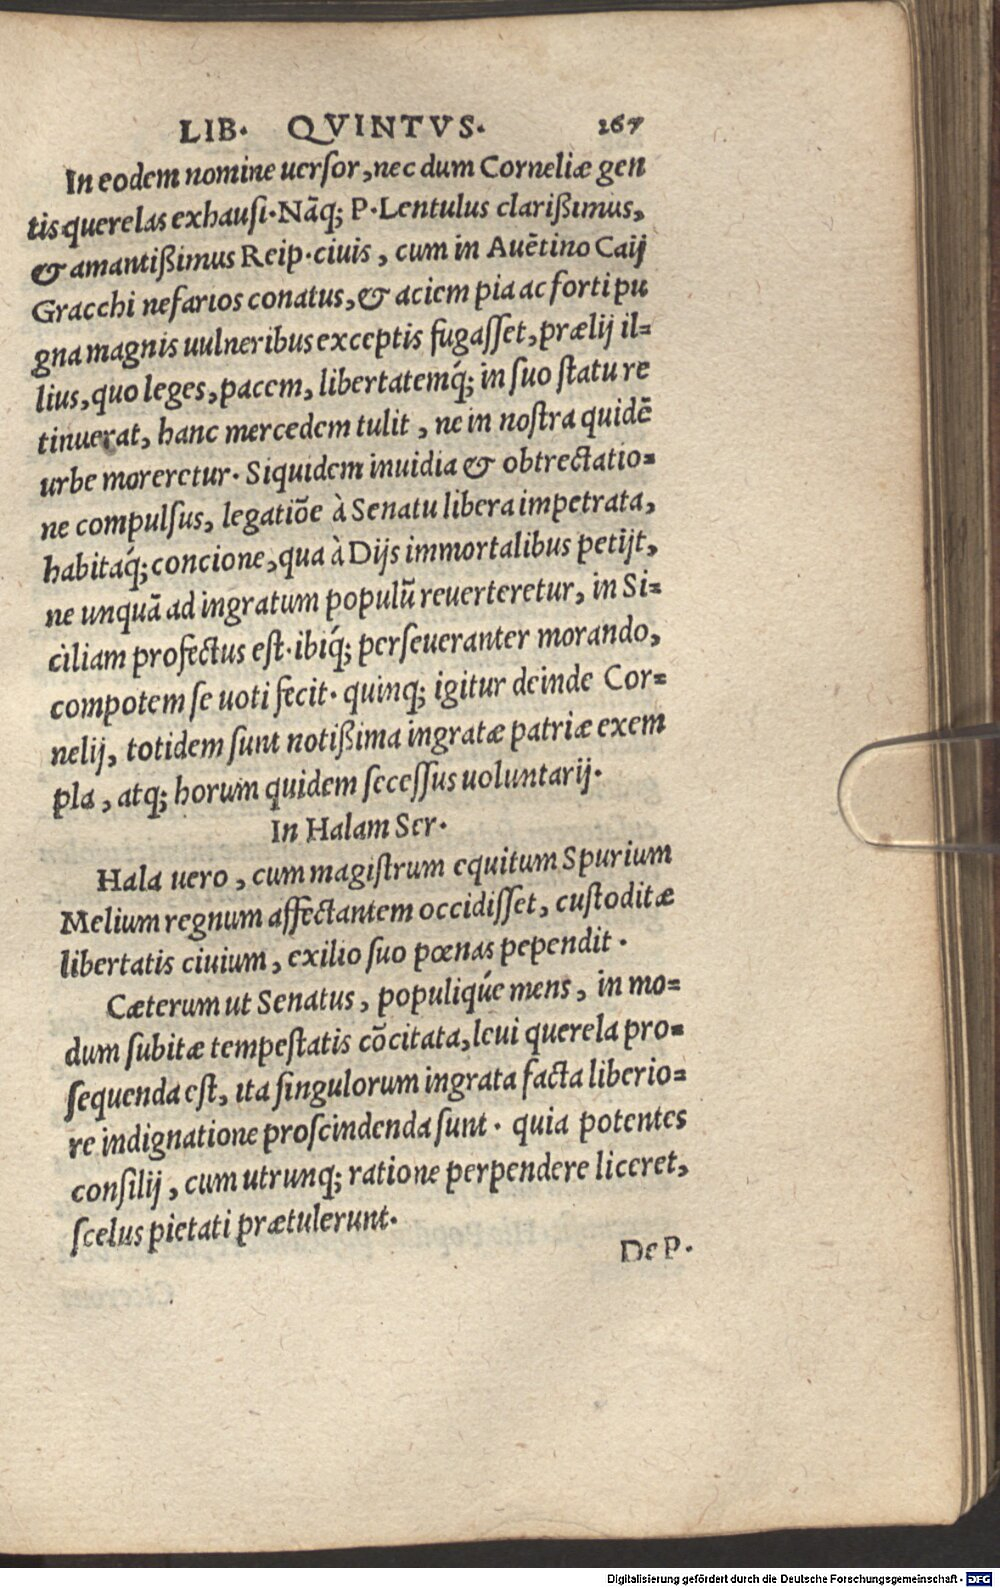 LIB. QVINTVS. 267
In eodem nomine uerſor, nec dum Corneliæ gen
tis querelas exhauſi. Nāq; P. Lentulus clarißimus,
& amantißimus Reip. ciuis, cum in Auētino Caij
Gracchi nefarios conatus, & aciem pia ac forti pu
gna magnis uulneribus exceptis fugaſſet, prælij il=
lius, quo leges, pacem, libertatemq́; in ſuo ſtatu re
tinuerat, hanc mercedem tulit, ne in noſtra quidē
urbe moreretur. Siquidem inuidia & obtrectatio=
ne compulſus, legatiōe à Senatu libera impetrata,
habitaq́; concione, qua à Dijs immortalibus petijt,
ne unquā ad ingratum populū reuerteretur, in Si=
ciliam profectus eſt. ibiq́; perſeueranter morando,
compotem ſe uoti fecit. quinq; igitur deinde Cor=
nelij, totidem ſunt notißima ingratæ patriæ exem
pla, atq; horum quidem ſeceſſus uoluntarij.
In Halam Ser.
Hala uero, cum magiſtrum equitum Spurium
Melium regnum affectantem occidiſſet, cuſtoditæ
libertatis ciuium, exilio ſuo pœnas pependit.
Cæterum ut Senatus, populiq́ue mens, in mo=
dum ſubitæ tempeſtatis cōcitata, leui querela pro=
ſequenda eſt, ita ſingulorum ingrata facta liberio=
re indignatione proſcindenda ſunt. quia potentes
conſilij, cum utrunq; ratione perpendere liceret,
ſcelus pietati prætulerunt.
De P.
Digitalisierung gefördert durch die Deutsche Forschungsgemeinschaft - DFG